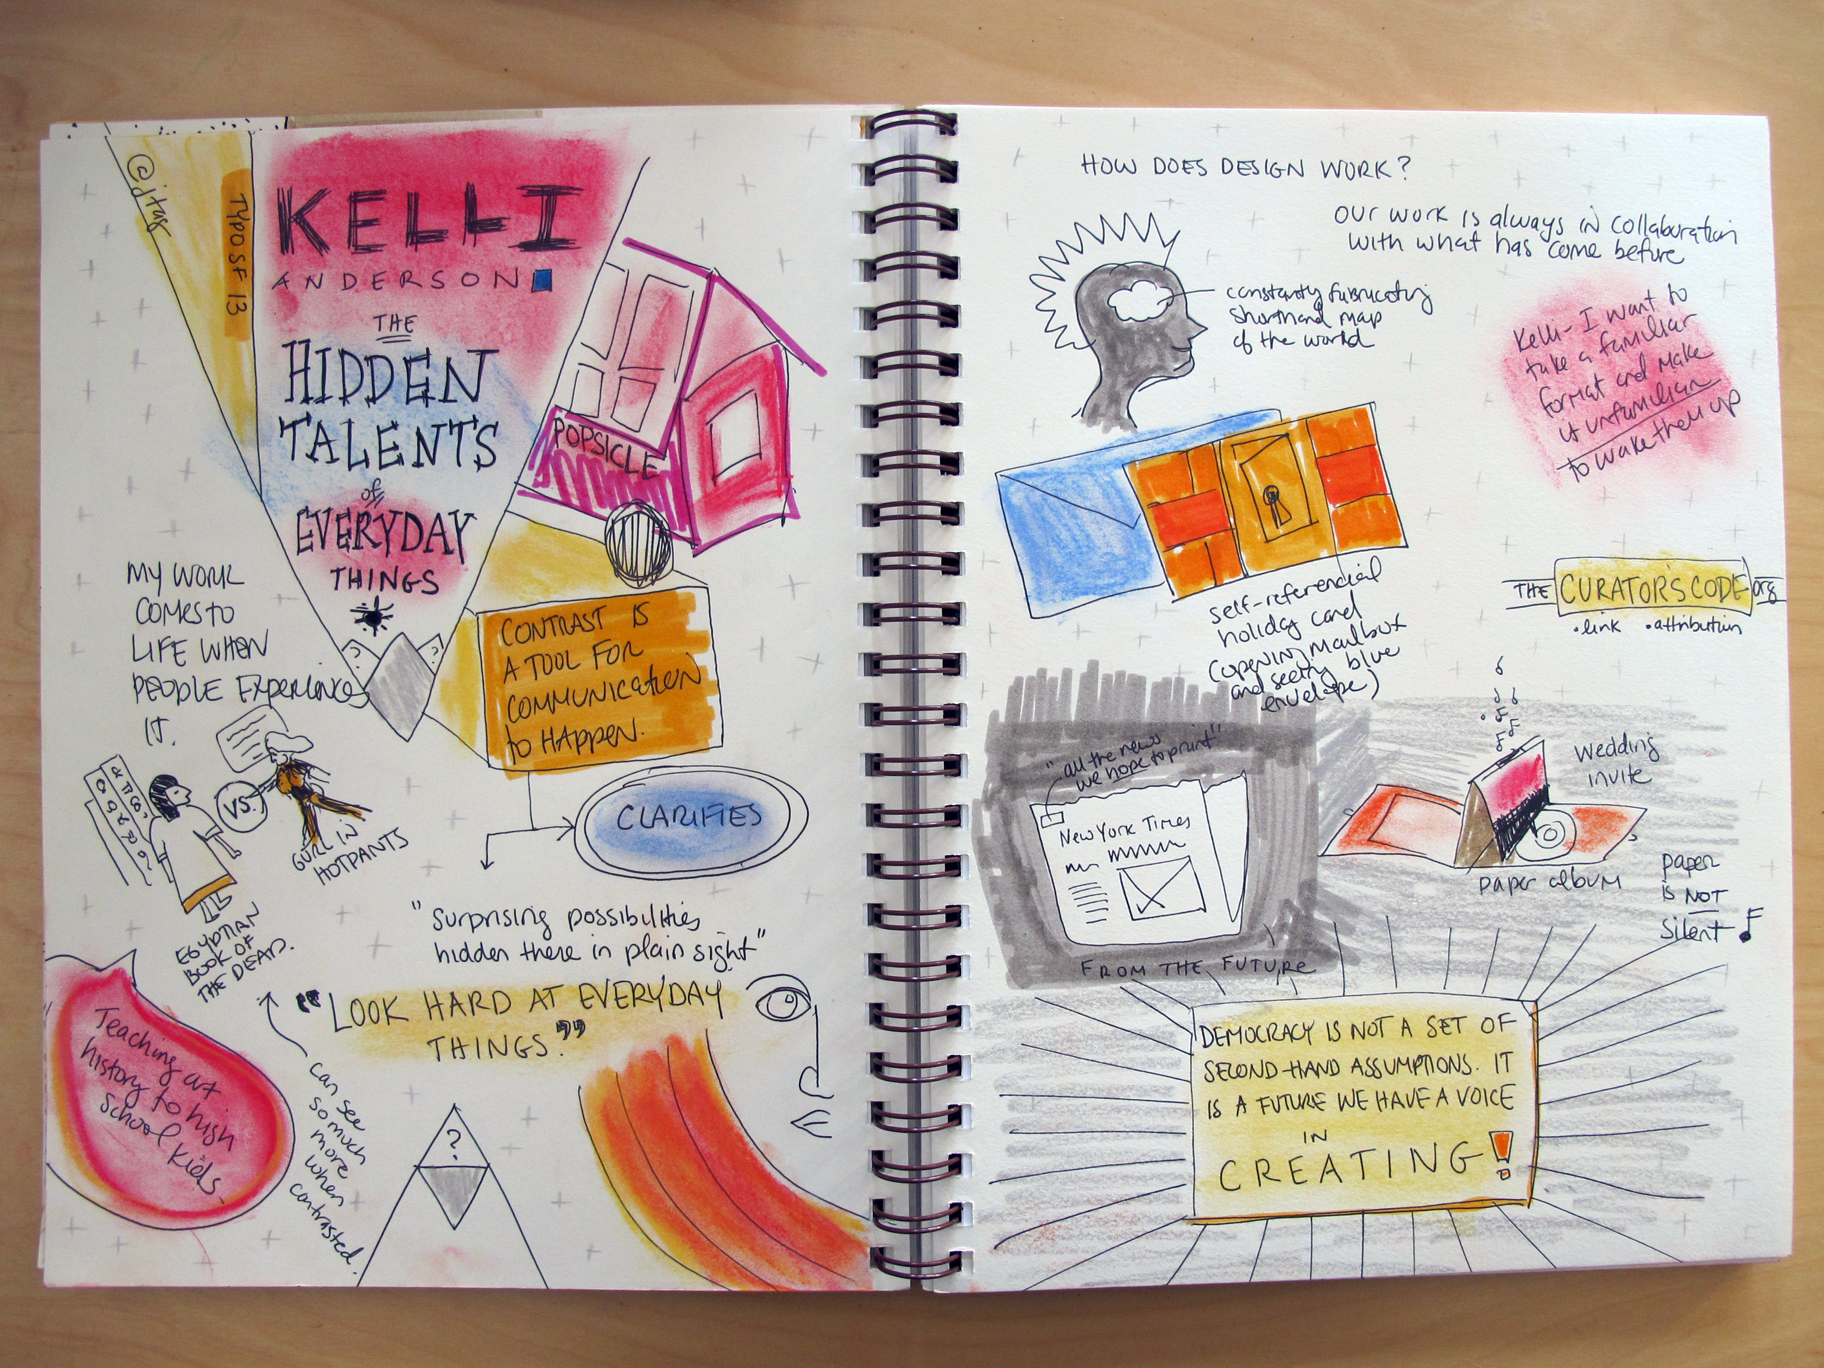 @jtag
TYPO SF 13
KELLI
ANDERSON
THE
HIDDEN
TALENTS
of
EVERYDAY
THINGS
POPSICLE
MY WORK
COMES TO
LIFE WHEN
PEOPLE EXPERIENCE
IT.
CONTRAST IS
A TOOL FOR
COMMUNICATION
to HAPPEN.
CLARIFIES
VS.
GURL IN
HOTPANTS
EGYPTIAN
BOOK OF
THE DEAD.
"surprising possibilities
hidden there in plain sight"
"LOOK HARD AT EVERYDAY
THINGS."
Teaching art
history to high
school kids.
can see
so much
more
when
contrasted.
?
?
?
HOW DOES DESIGN WORK?
OUR WORK IS always in collaboration
with what has come before
constantly fabricating
shorthand map
of the world
Kelli- I want to
take a familiar
format and make
it unfamiliar
to wake them up
self-referencial
holiday card
(opening mailbox
and seeing blue
envelope)
THE CURATOR'S CODE.org
•link •attribution
"all the news
we hope to print"
New York Times
FROM THE FUTURE
wedding
invite
paper album
paper
is NOT
silent
DEMOCRACY IS NOT A SET OF
SECOND-HAND ASSUMPTIONS. IT
IS A FUTURE WE HAVE A VOICE
IN
CREATING!